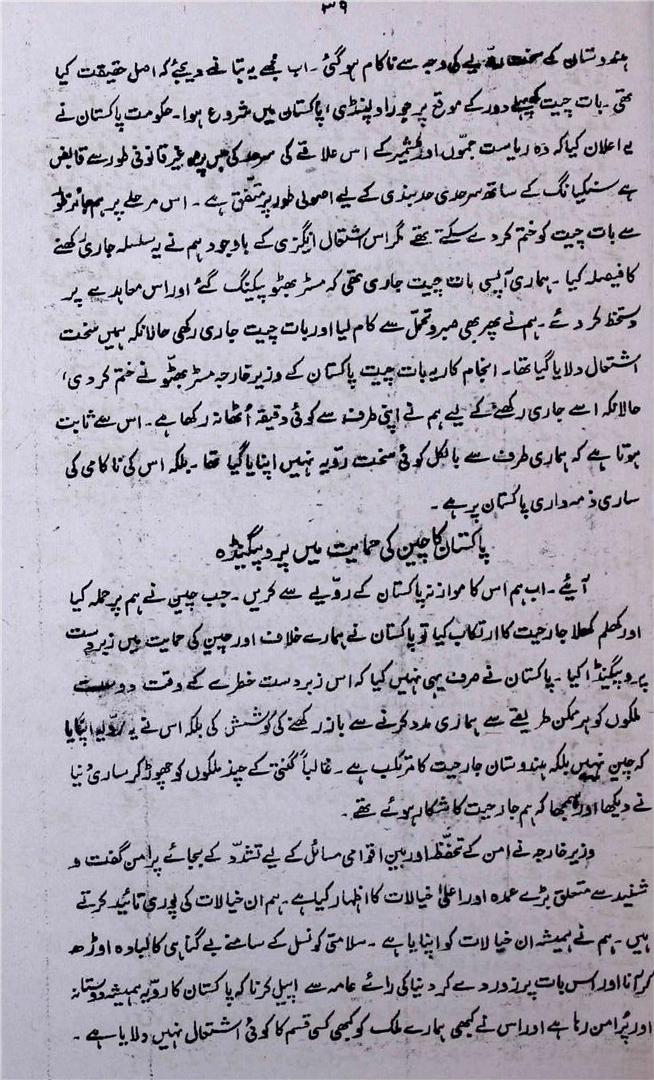 ۳۹
ہندوستان کے سخت رویے کی وجہ سے ناکام ہو گئی ۔ اب مجھے یہ بتانے دیجئے کہ اصل حقیقت کیا
تھی ۔ بات چیت کے پہلے دور کے موقع پر جو راولپنڈی، پاکستان میں شروع ہوا ۔ حکومت پاکستان نے
یہ اعلان کیا کہ وہ ریاست جموّں اور کشمیر کے اس علاقے کی سرحد کی جس پر وہ غیر قانونی طور سے قابض
ہے سنکیانگ کے ساتھ سرحدی حد بندی کے لیے اصولی طور پر متفّق ہے ۔ اس مرحلے پر ہم جائز طور
سے بات چیت کو ختم کر دے سکتے تھے مگر اس اشتعال انگیزی کے باوجود ہم نے یہ سلسلہ جاری رکھنے
کا فیصلہ کیا ۔ ہماری آپسی بات چیت جاری تھی کہ مسٹر بھٹو پیکینگ گئے اور اس معاہدے پر
دستخط کر دئے ۔ ہم نے پھر بھی صبر و تحمّل سے کام لیا اور بات چیت جاری رکھی حالانکہ ہمیں سخت
اشتعال دلایا گیا تھا ۔ انجام کار یہ بات چیت پاکستان کے وزیر خارجہ مسٹر بھٹّو نے ختم کر دی،
حالانکہ اسے جاری رکھنے کے لیے ہم نے اپنی طرف سے کوئی دقیقہ اُٹھا نہ رکھا ہے ۔ اس سے ثابت
ہوتا ہے کہ ہماری طرف سے بالکل کوئی سخت روّیہ نہیں اپنایا گیا تھا ۔ بلکہ اس کی ناکامی کی
ساری ذمہ داری پاکستان پر ہے ۔
پاکستان کا چین کی حمایت میں پروپیگنڈہ
آیئے ۔ اب ہم اس کا موازنہ پاکستان کے روّیے سے کریں ۔ جب چین نے ہم پر حملہ کیا
اور کھلم کھلا جارحیت کا ارتکاب کیا تو پاکستان نے ہمارے خلاف اور چین کی حمایت میں زبردست
پروپیگنڈا کیا ۔ پاکستان نے صرف یہی نہیں کیا کہ اس زبردست خطرے کے وقت دوست
ملکوں کو ہر ممکن طریقے سے ہماری مدد کرنے سے باز رکھنے کی کوشش کی بلکہ اس نے یہ روّیہ اپنایا
کہ چین نہیں بلکہ ہندوستان جارحیت کا مرتکب ہے ۔ غالباً گنتی کے چند ملکوں کو چھوڑ کر ساری دُنیا
نے دیکھا اور سمجھا کہ ہم جارحیت کا شکار ہوئے تھے ۔
وزیر خارجہ نے امن کے تحفّظ اور بین اقوامی مسائل کے لیے تشدّد کے بجائے پرامن گفت و
شنید سے متعلق بڑے عمدہ اور اعلیٰ خیالات کا اظہار کیا ہے ۔ ہم ان خیالات کی پوری تائید کرتے
ہیں ۔ ہم نے ہمیشہ ان خیالات کو اپنایا ہے ۔ سلامتی کونسل کے سامنے بے گناہی کا لبادہ اوڑھ
کر آنا اور اس بات پر زور دے کر دنیا کی رائے عامہ سے اپیل کرنا کہ پاکستان کا روّیہ ہمیشہ دوستانہ
اور پُرامن رہا ہے اور اس نے کبھی ہمارے ملک کو کبھی کسی قسم کا کوئی اشتعال نہیں دلایا ہے ۔